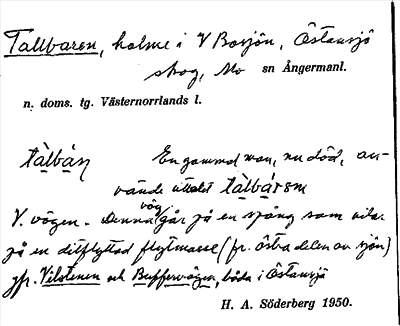 Tallbaren, holme i V Borsjön, Östansjö
skog, Mo sn Ångermanl.
n. doms. tg. Västernorrlands l.
tàlbáṇ En gammal man, nu död, an-
vände uttalet tàlbársṃ
V. vägen. Denna väg går på en spång som vilar
på en ditflyttad flytmasse (fr. östra delen av sjön)
jfr. Vilstenen och Buffervägen, båda i Östansjö
H. A. Söderberg 1950.